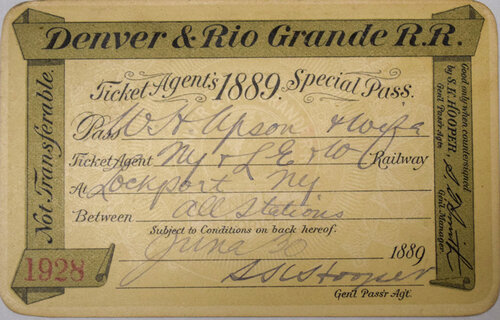 Denver & Rio Grande R.R.
Not Transferable.
Ticket Agent's 1889. Special Pass.
Pass W. H. Upson & Wife
Ticket Agent NY & L E & W Railway
At Lockport NY
Between All Stations
Subject to Conditions on back hereof.
June 20 1889
S K Hooper
Gen'l Pass'r Agt.
1928
Good only when countersigned
by S. K. HOOPER, Gen'l Pass'r Agt.
Gen'l Manager.